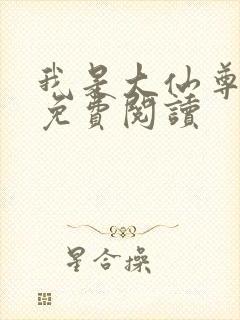 我是大仙尊
免費閱讀
星合操